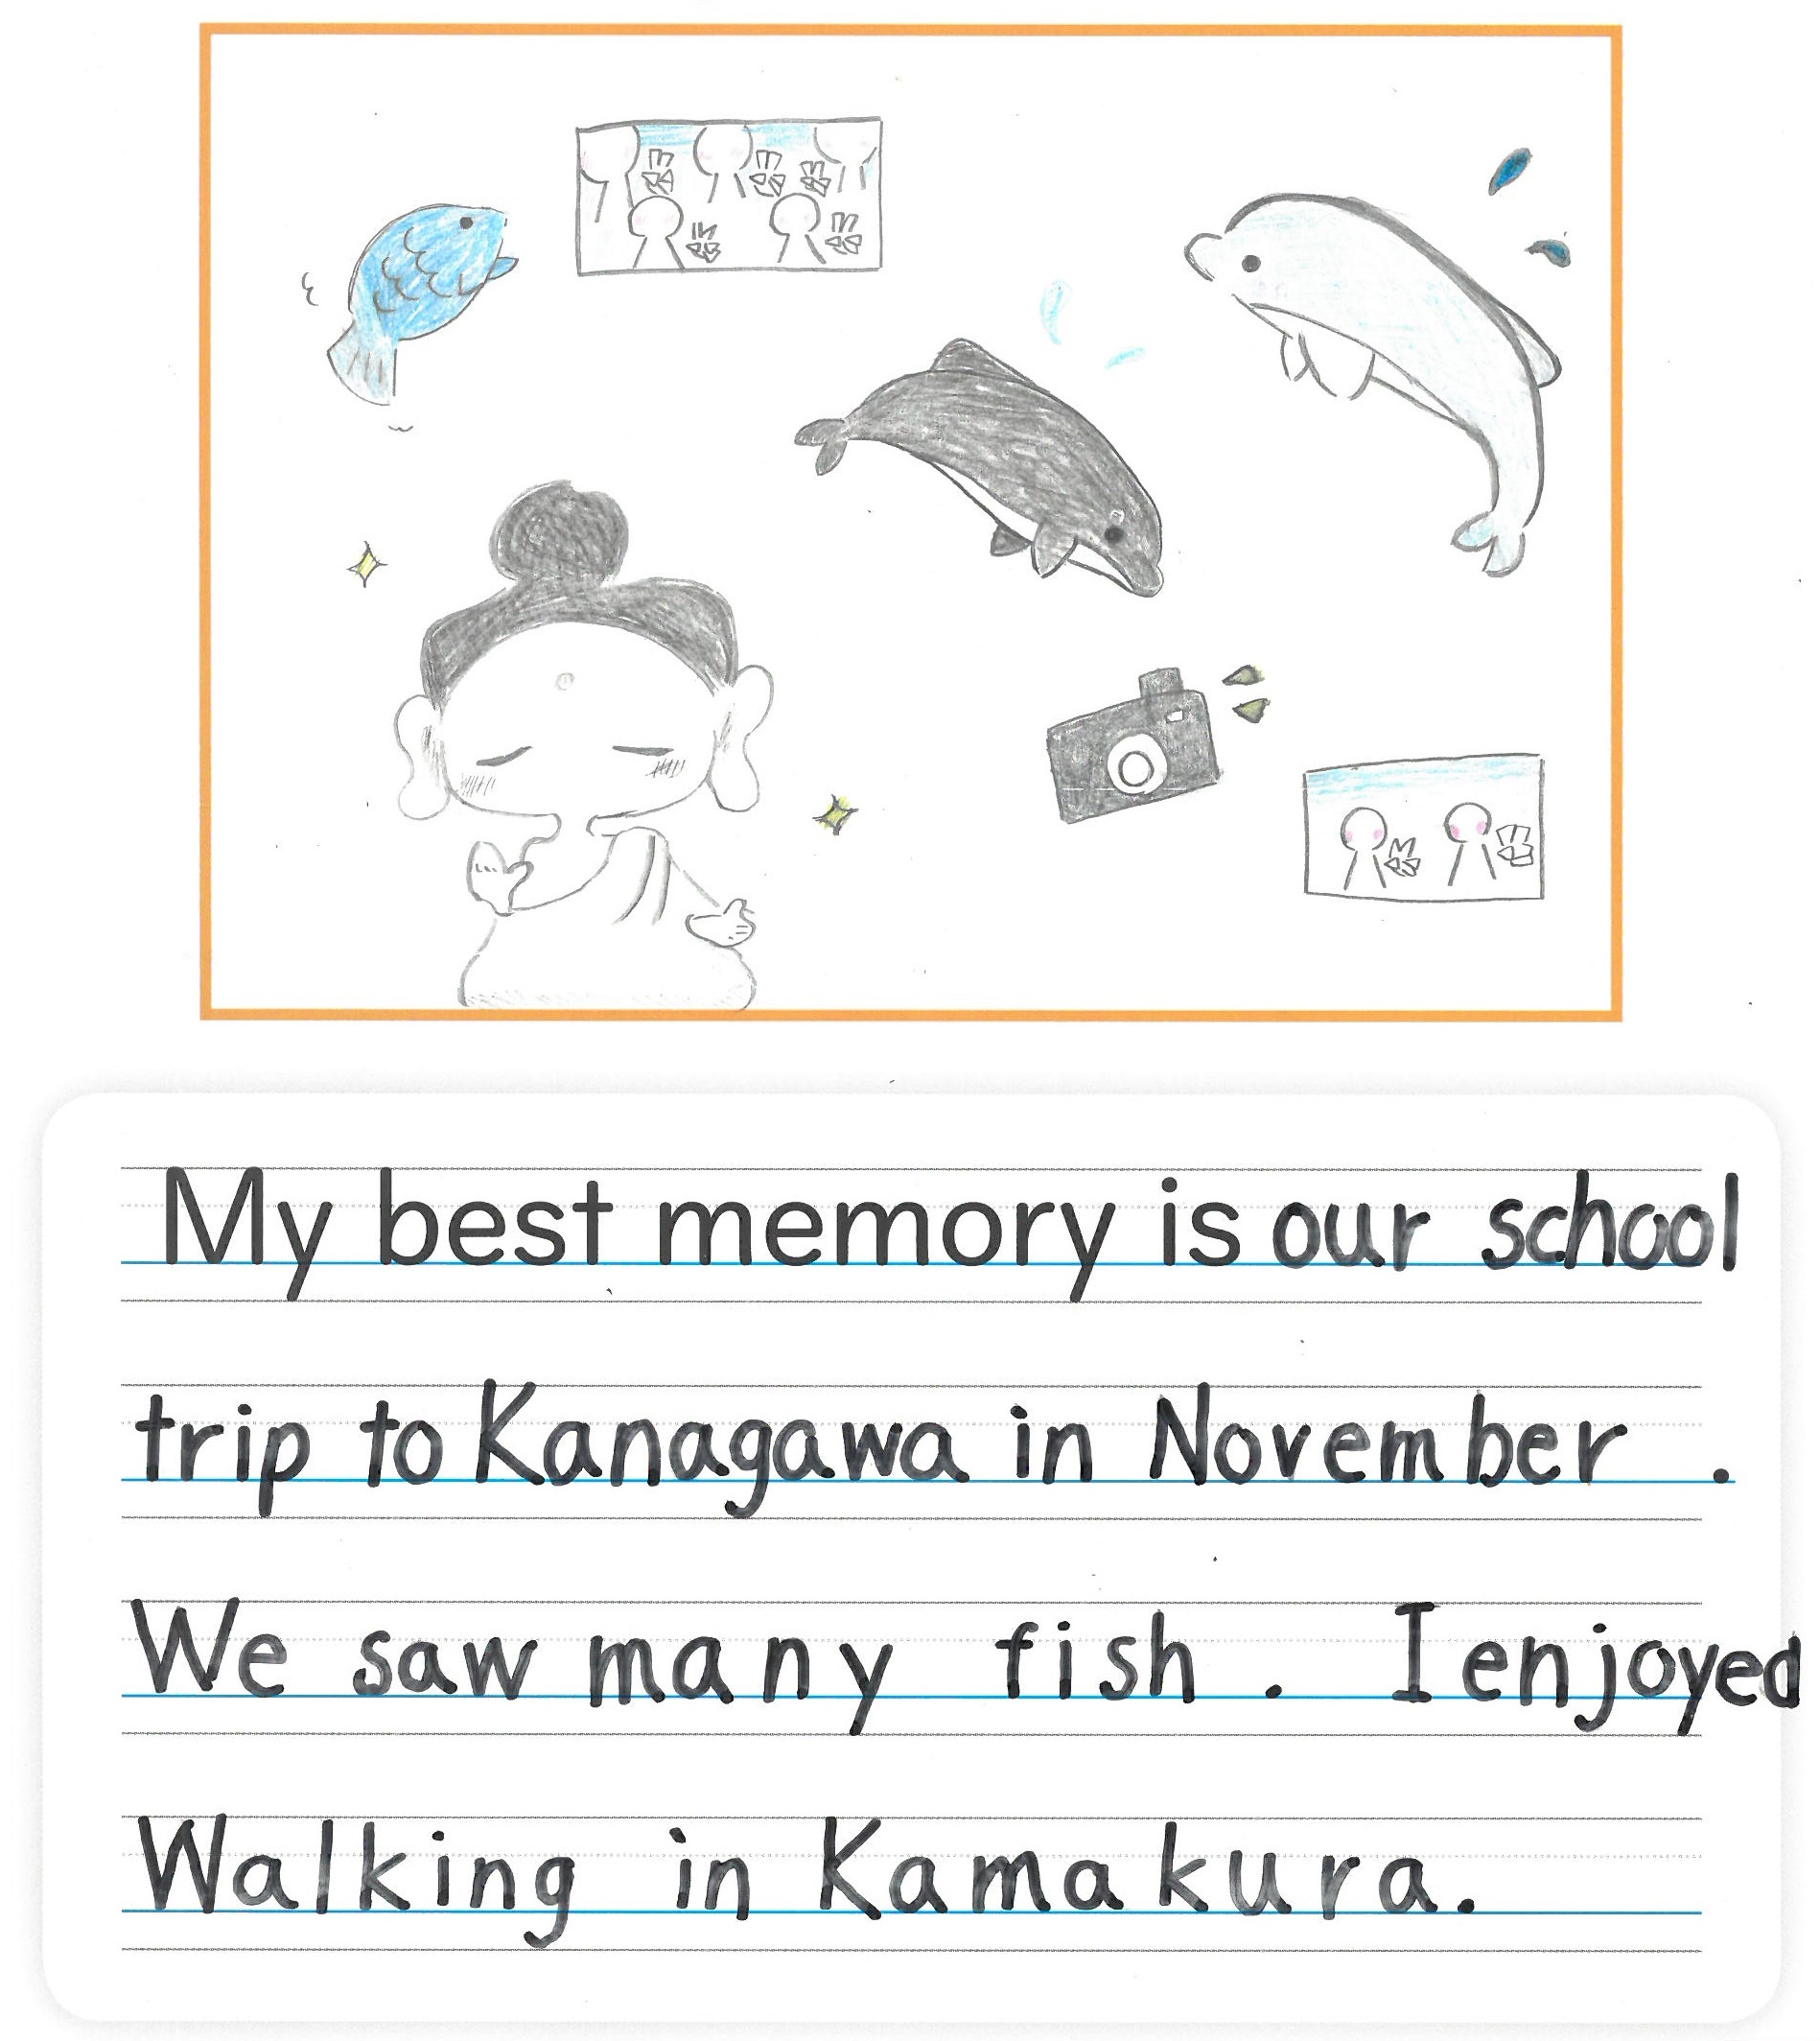 My best memory is our school
trip to Kanagawa in November .
We saw many fish . I enjoyed
Walking in Kamakura.